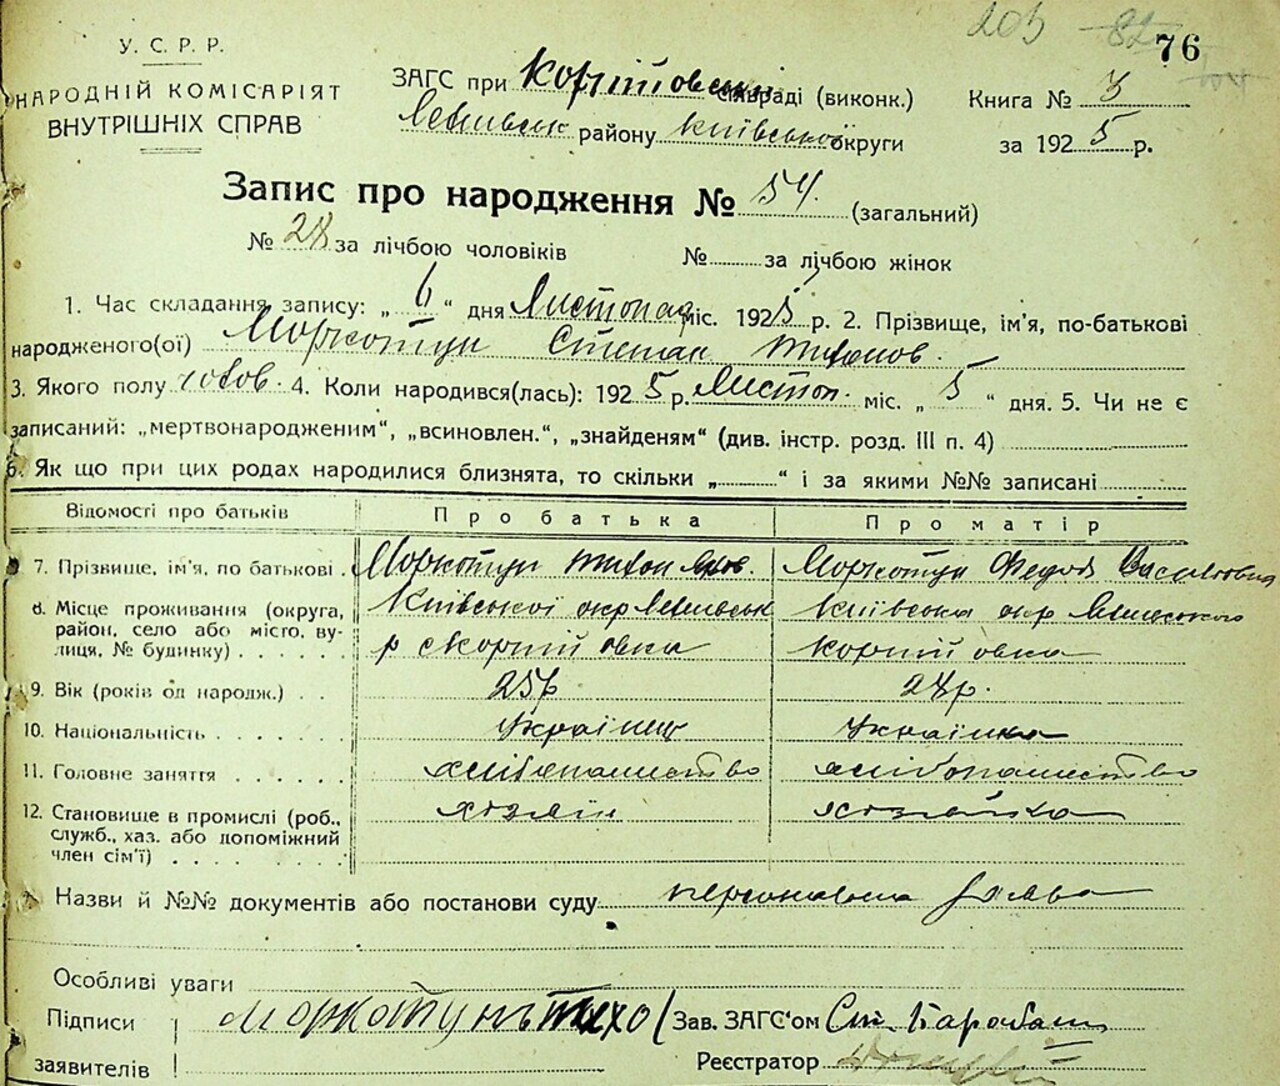 203 82 76
У. С. Р. Р.
НАРОДНІЙ КОМІСАРІЯТ
ВНУТРІШНІХ СПРАВ
ЗАГС при Корній овській сільраді (виконк.)
району Київської округи
Книга № 3
за 1925 р.
Запис про народження № 54. (загальний)
№ 28 за лічбою чоловіків № за лічбою жінок
1. Час складання запису: „ 6 “ дня Листопад міс. 1925 р. 2. Прізвище, ім'я, по-батькові
народженого(ої) Моркотун Степан Тихонов.
3. Якого полу чолов. 4. Коли народився(лась): 1925 р. Листоп. міс. „ 5 “ дня. 5. Чи не є
записаний: „мертвонародженим“, „всиновлен.“, „знайденям“ (див. інстр. розд. III п. 4)
6. Як що при цих родах народилися близнята, то скільки „ “ і за якими №№ записані
Відомості про батьків Про батька Про матір
7. Прізвище, ім'я, по батькові Моркотун Тихон Моркотун Федос Василовна
8. Місце проживання (округа, район, село або місто, вулиця, № будинку) Київської окр Київська окр
р с Корній овка Корній овка
9. Вік (років од народж.) 25 р 24 р.
10. Національність Українец Українка
11. Головне заняття хлібопашество хлібопашество
12. Становище в промислі (роб., служб., хаз. або допоміжний член сім'ї) хозяїн хозяйка
Назви й №№ документів або постанови суду персональна заява
Особливі уваги
Підписи заявителів Моркотунъ Тихо Зав. ЗАГС'ом Ст. Барабаш
Реєстратор